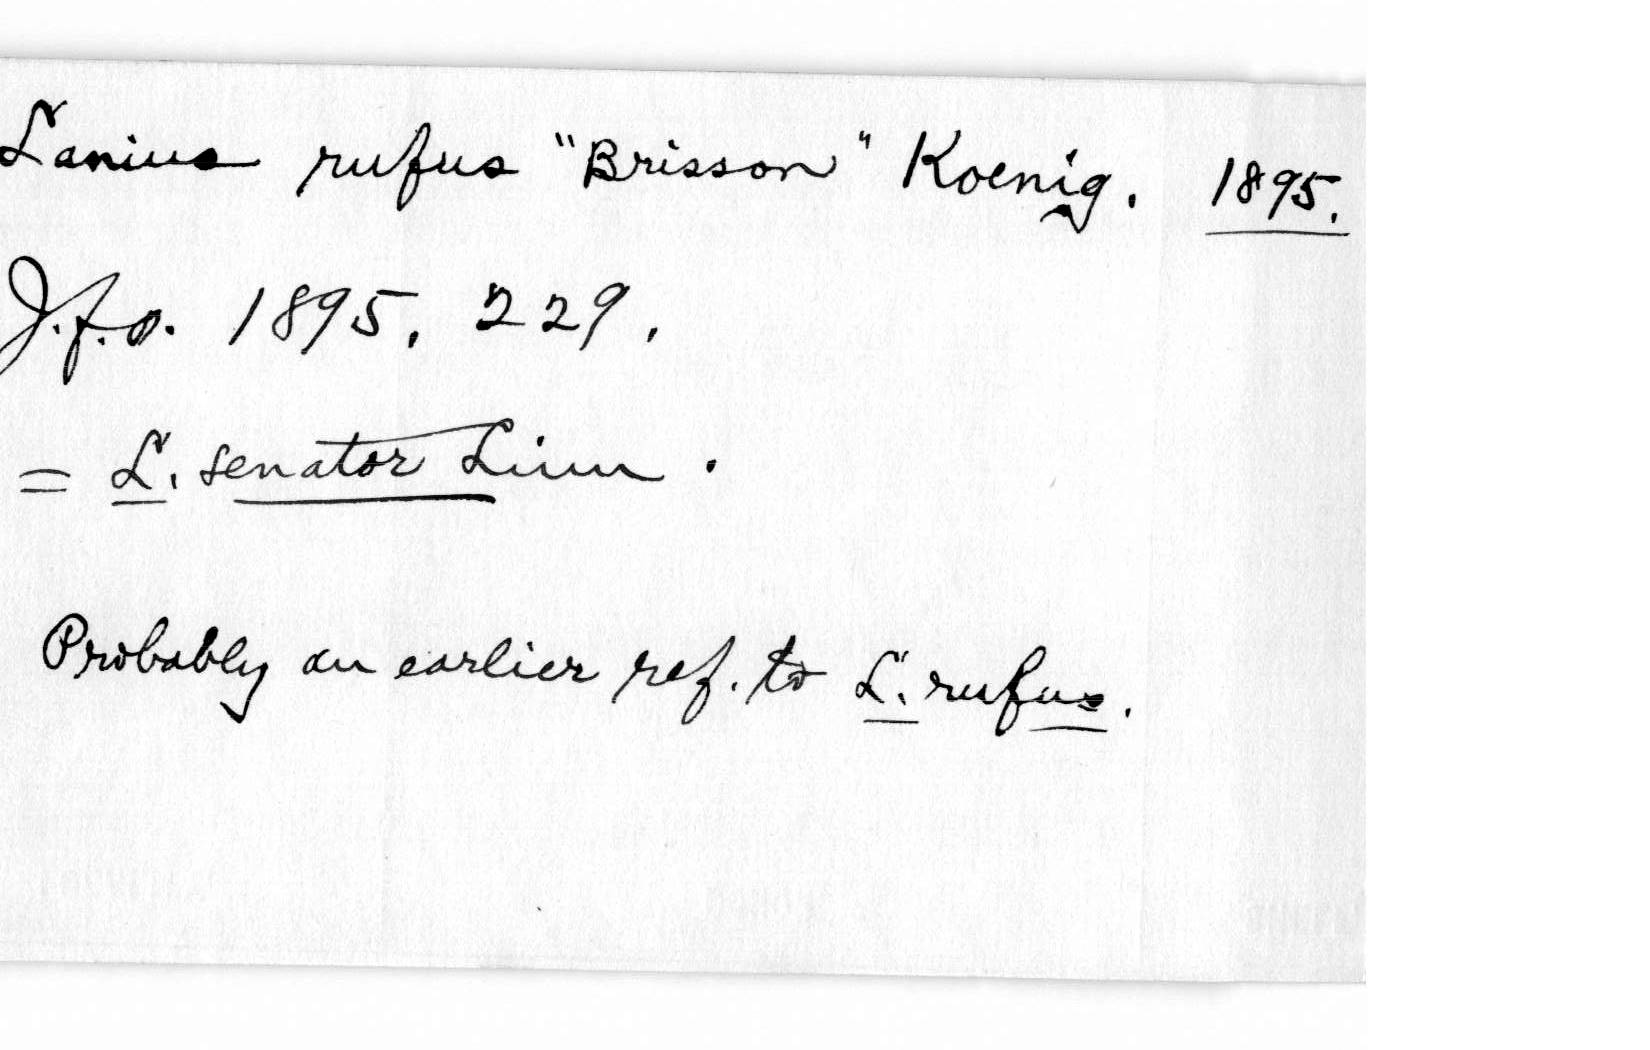 Lanius rufus "Brisson" Koenig. 1895.
J.f.o. 1895, 229.
= L. senator Linn.
Probably an earlier ref. to L. rufus.